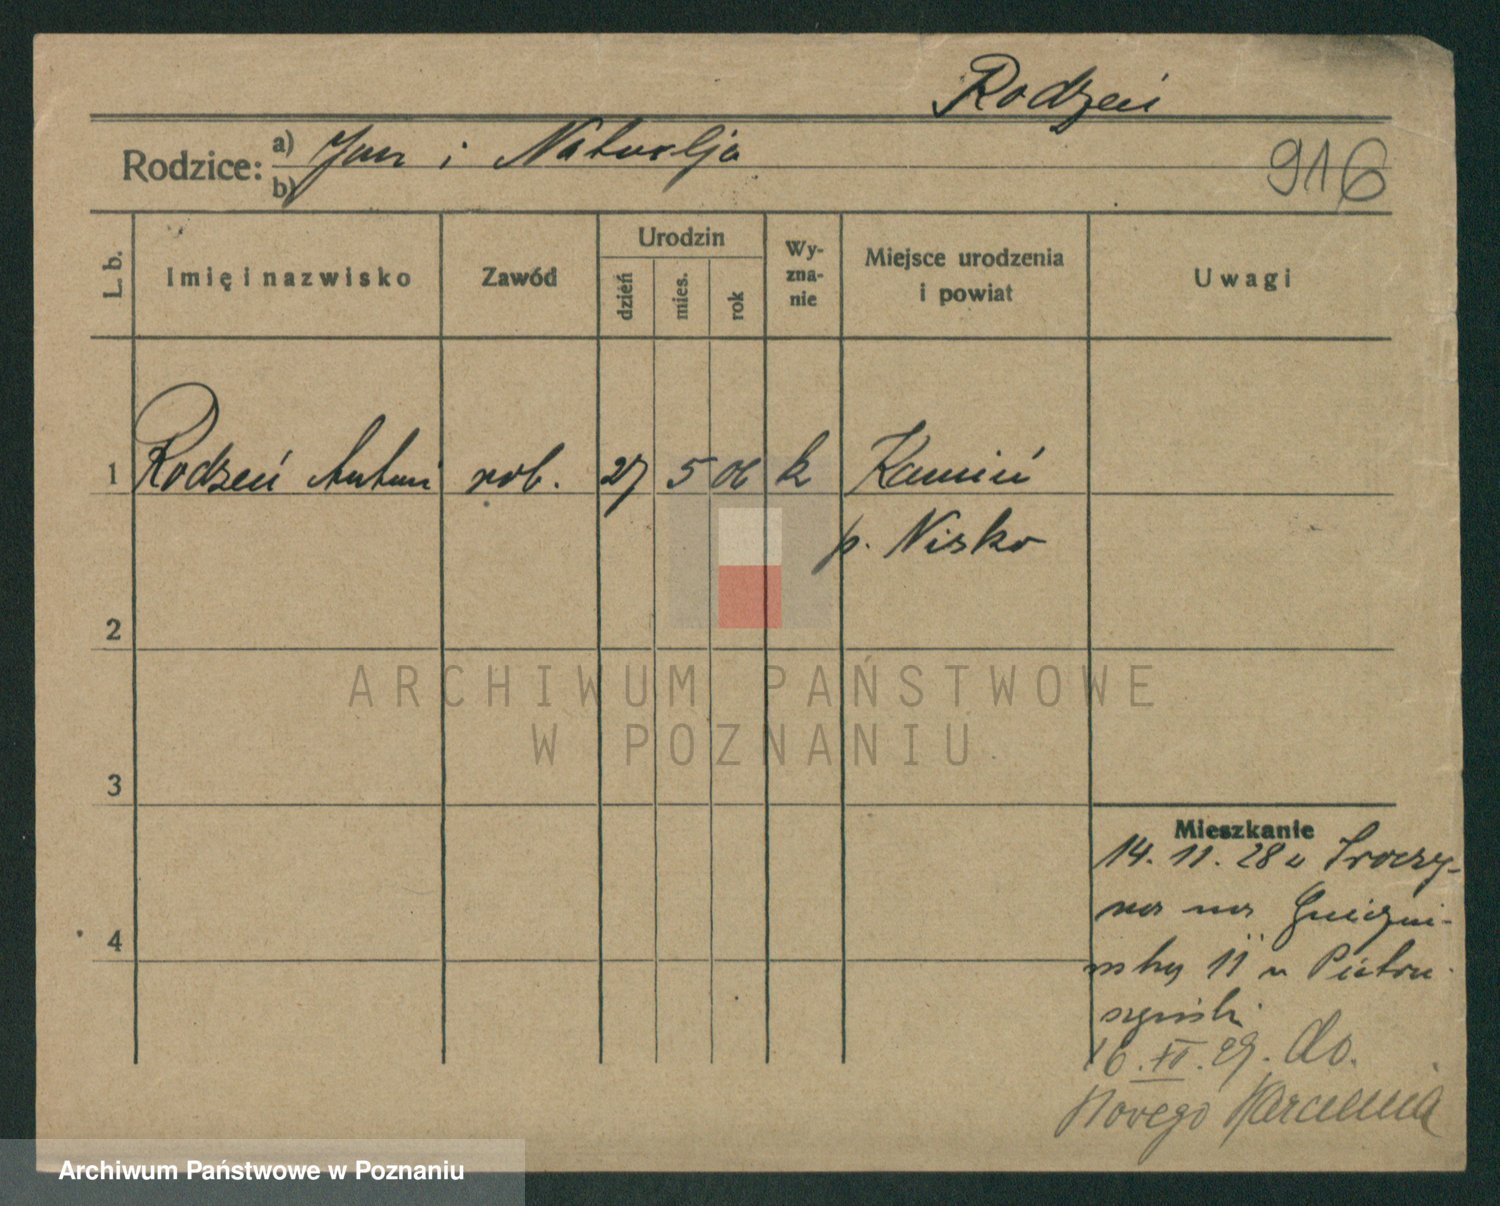 Rodzeń
Rodzice: a) Jan i Natalja
b)
916
L. b.
Imię i nazwisko
Zawód
Urodzin
dzień
mies.
rok
Wy-
zna-
nie
Miejsce urodzenia
i powiat
Uwagi
1 Rodzeń Antoni rob. 27 5 06 k Kamień
p. Nisko
2
3
4
Mieszkanie
14. 11. 28 z
na Gnieźni-
11 u Pietru-
szyński
16. XII. 29. do.
Nowego
ARCHIWUM PAŃSTWOWE
W POZNANIU
Archiwum Państwowe w Poznaniu